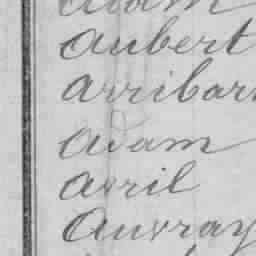 Adam
Aubert
Arribar
Adam
Avril
Auvray